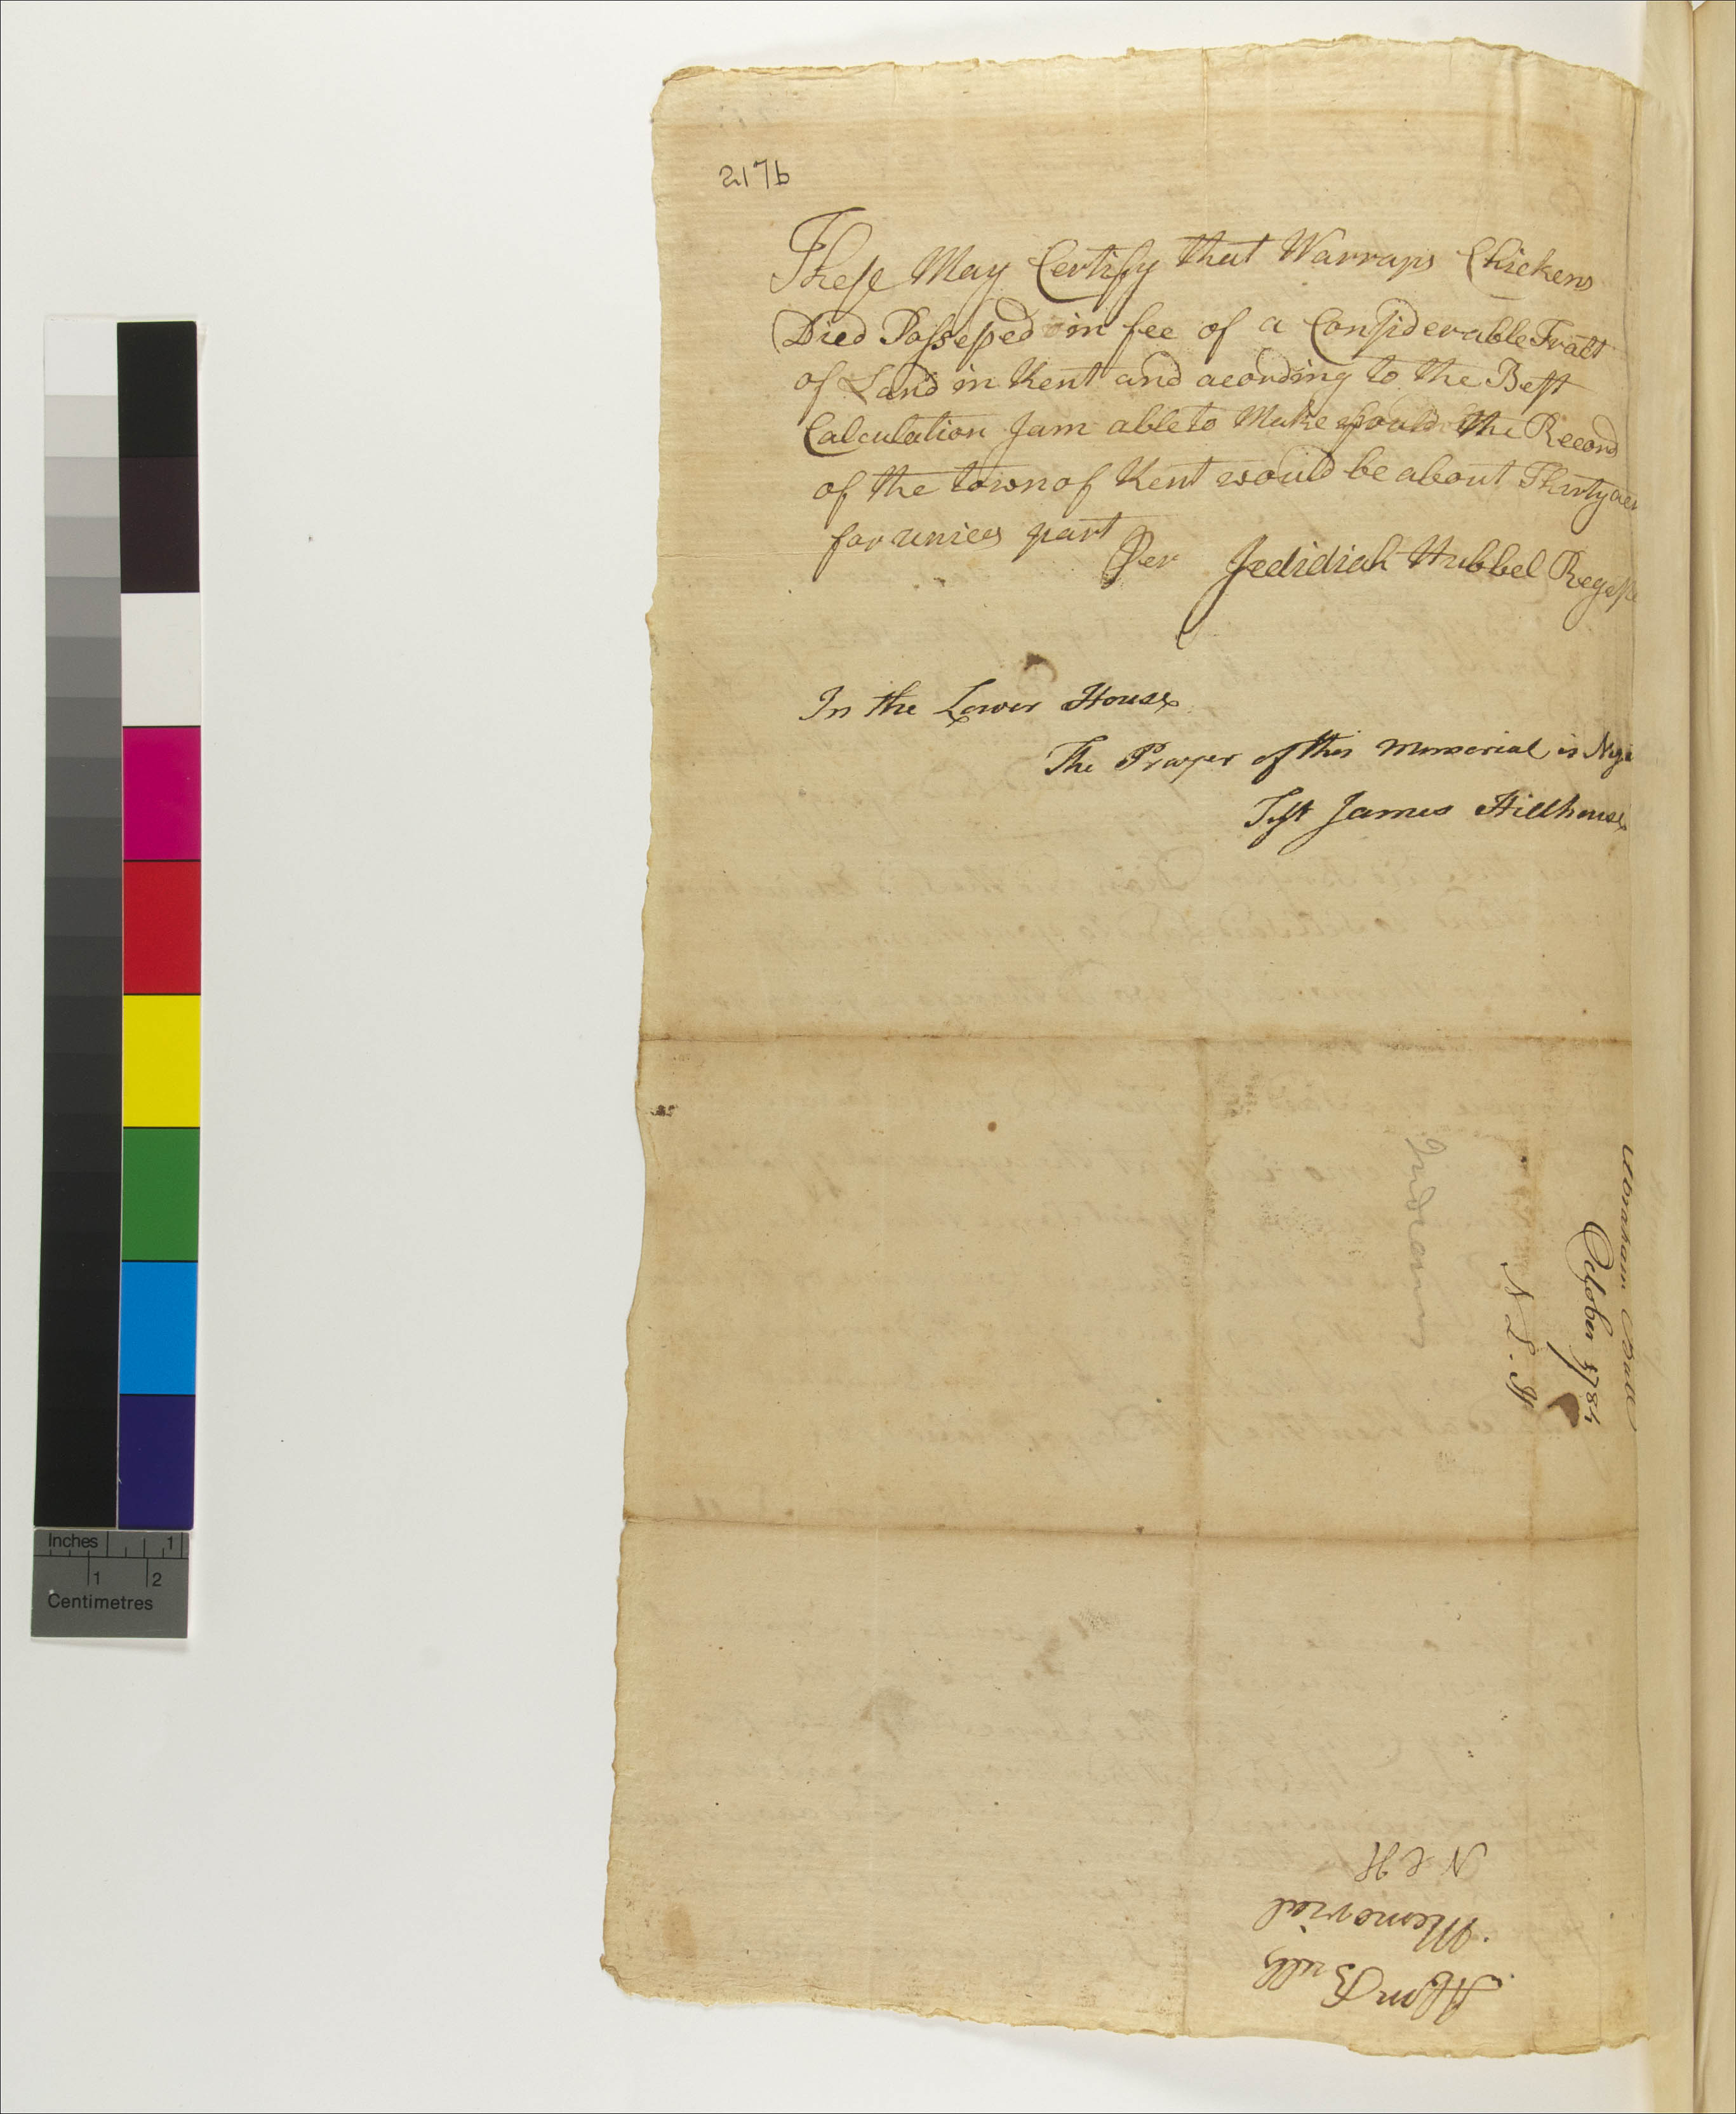 217b
These May Certify that Warraps Chickens
Died Possessed in fee of a Considerable Tract
of Land in Kent and acording to the Best
Calculation I am able to Make the Record
of the town of Kent would be about Thirty acr
for unices part
Per Jedidiah Hubbel Regester
In the Lower House
The Prayer of this Memorial is Neg
Test James Hillhouse
Abraham Bull
October 1784
N L. H
Indians
Abm Bulls
Memorial
N L H
Inches 1
1 2
Centimetres